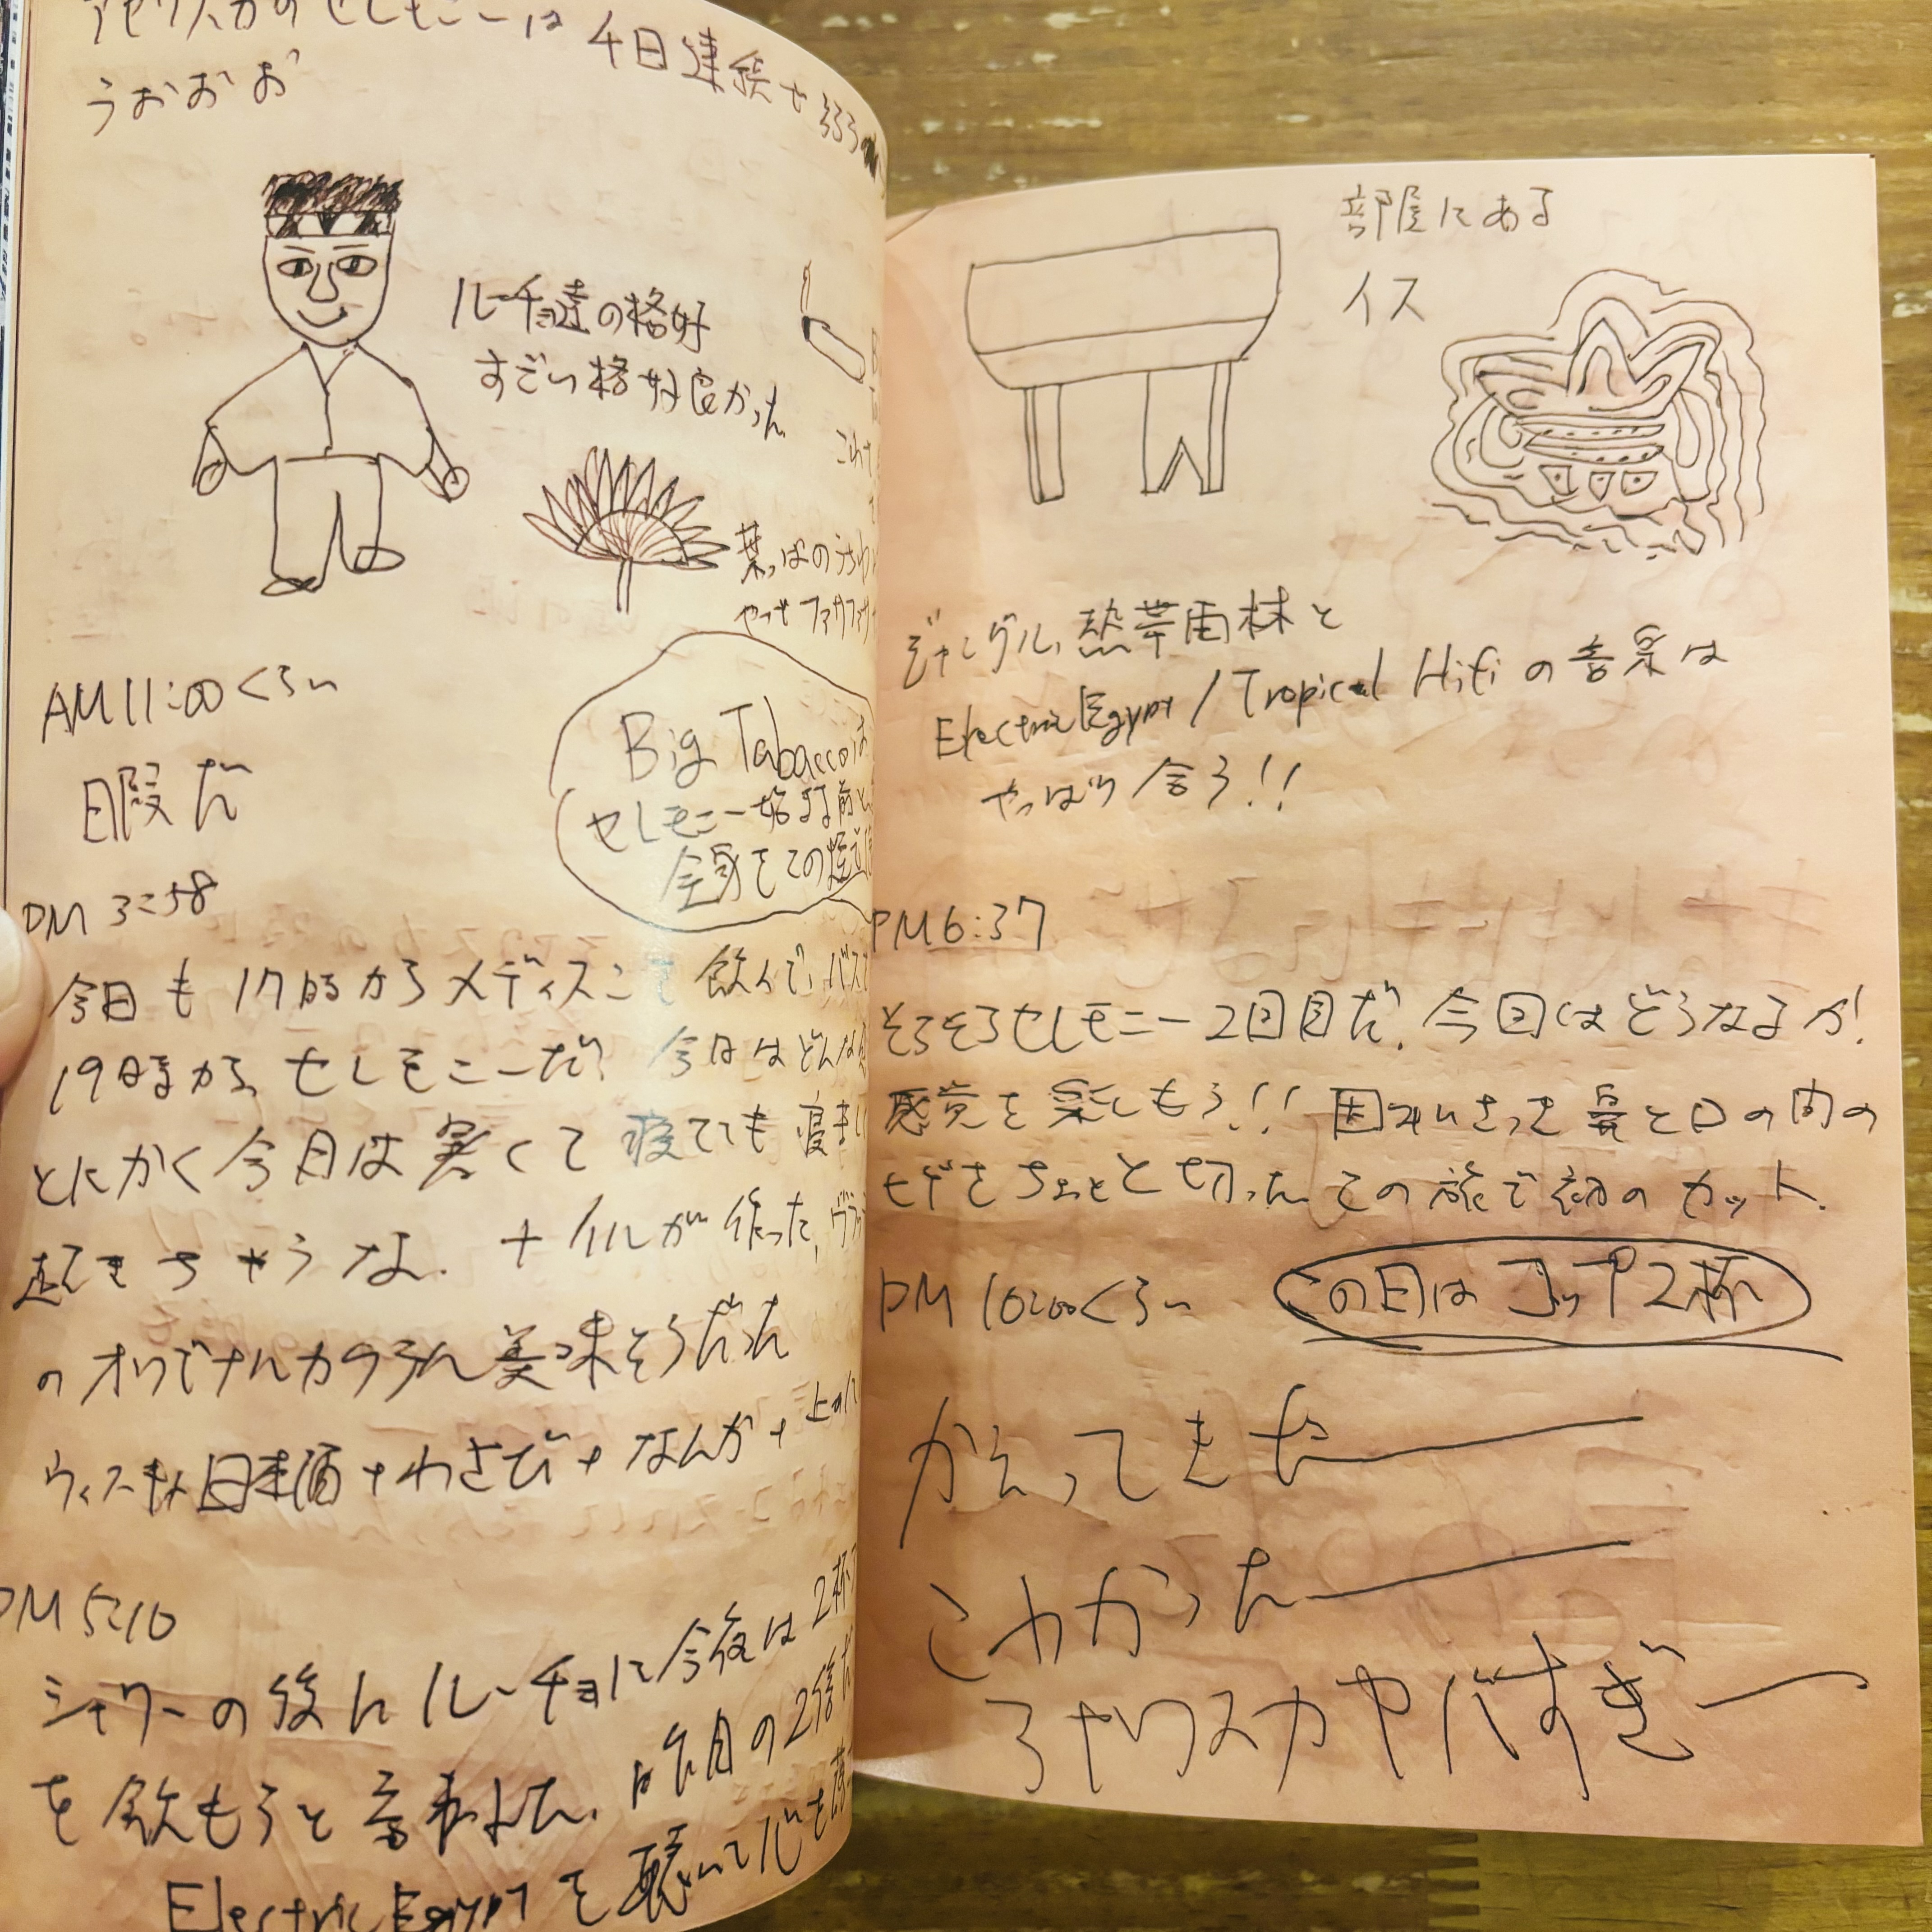 セレモニーは 4日連続
うおおお
ルーチョ達の格好
すごい格好良かった
葉っぱのうちわ
AM11:00くらい
暇だ
Big Tabaccoは
セレモニー始まる前
全身をこの煙
PM 3:58
今日も 17時からメディスン 飲んで、バス
19時から セレモニーだ! 今日はどんな
とにかく今日は暑くて 寝ても 寝
起きちゃうな. +イルが作った,
のオリジナルカクテル美味そうだった
ウィスキー 日本酒+わさび+なんか+
PM 5:10
シャワーの後に ルーチョに今夜は 2杯
を飲もうと言われた. 昨日の2倍だ
Electric Egypt を聴いて心を
部屋にある
イス
ジャングル, 熱帯雨林と
Electric Egypt / Tropical Hifi の音楽は
やっぱり 合う!!
PM6:37
そろそろセレモニー2回目だ. 今回はどうなるか!
感覚を楽しもう!! 因みにさっき鼻と口の間の
ヒゲをちょっと切った この旅で初のカット.
PM 10:00くらい
この日はコップ2杯
かえってきたー
こわかったー
ヤバすぎー